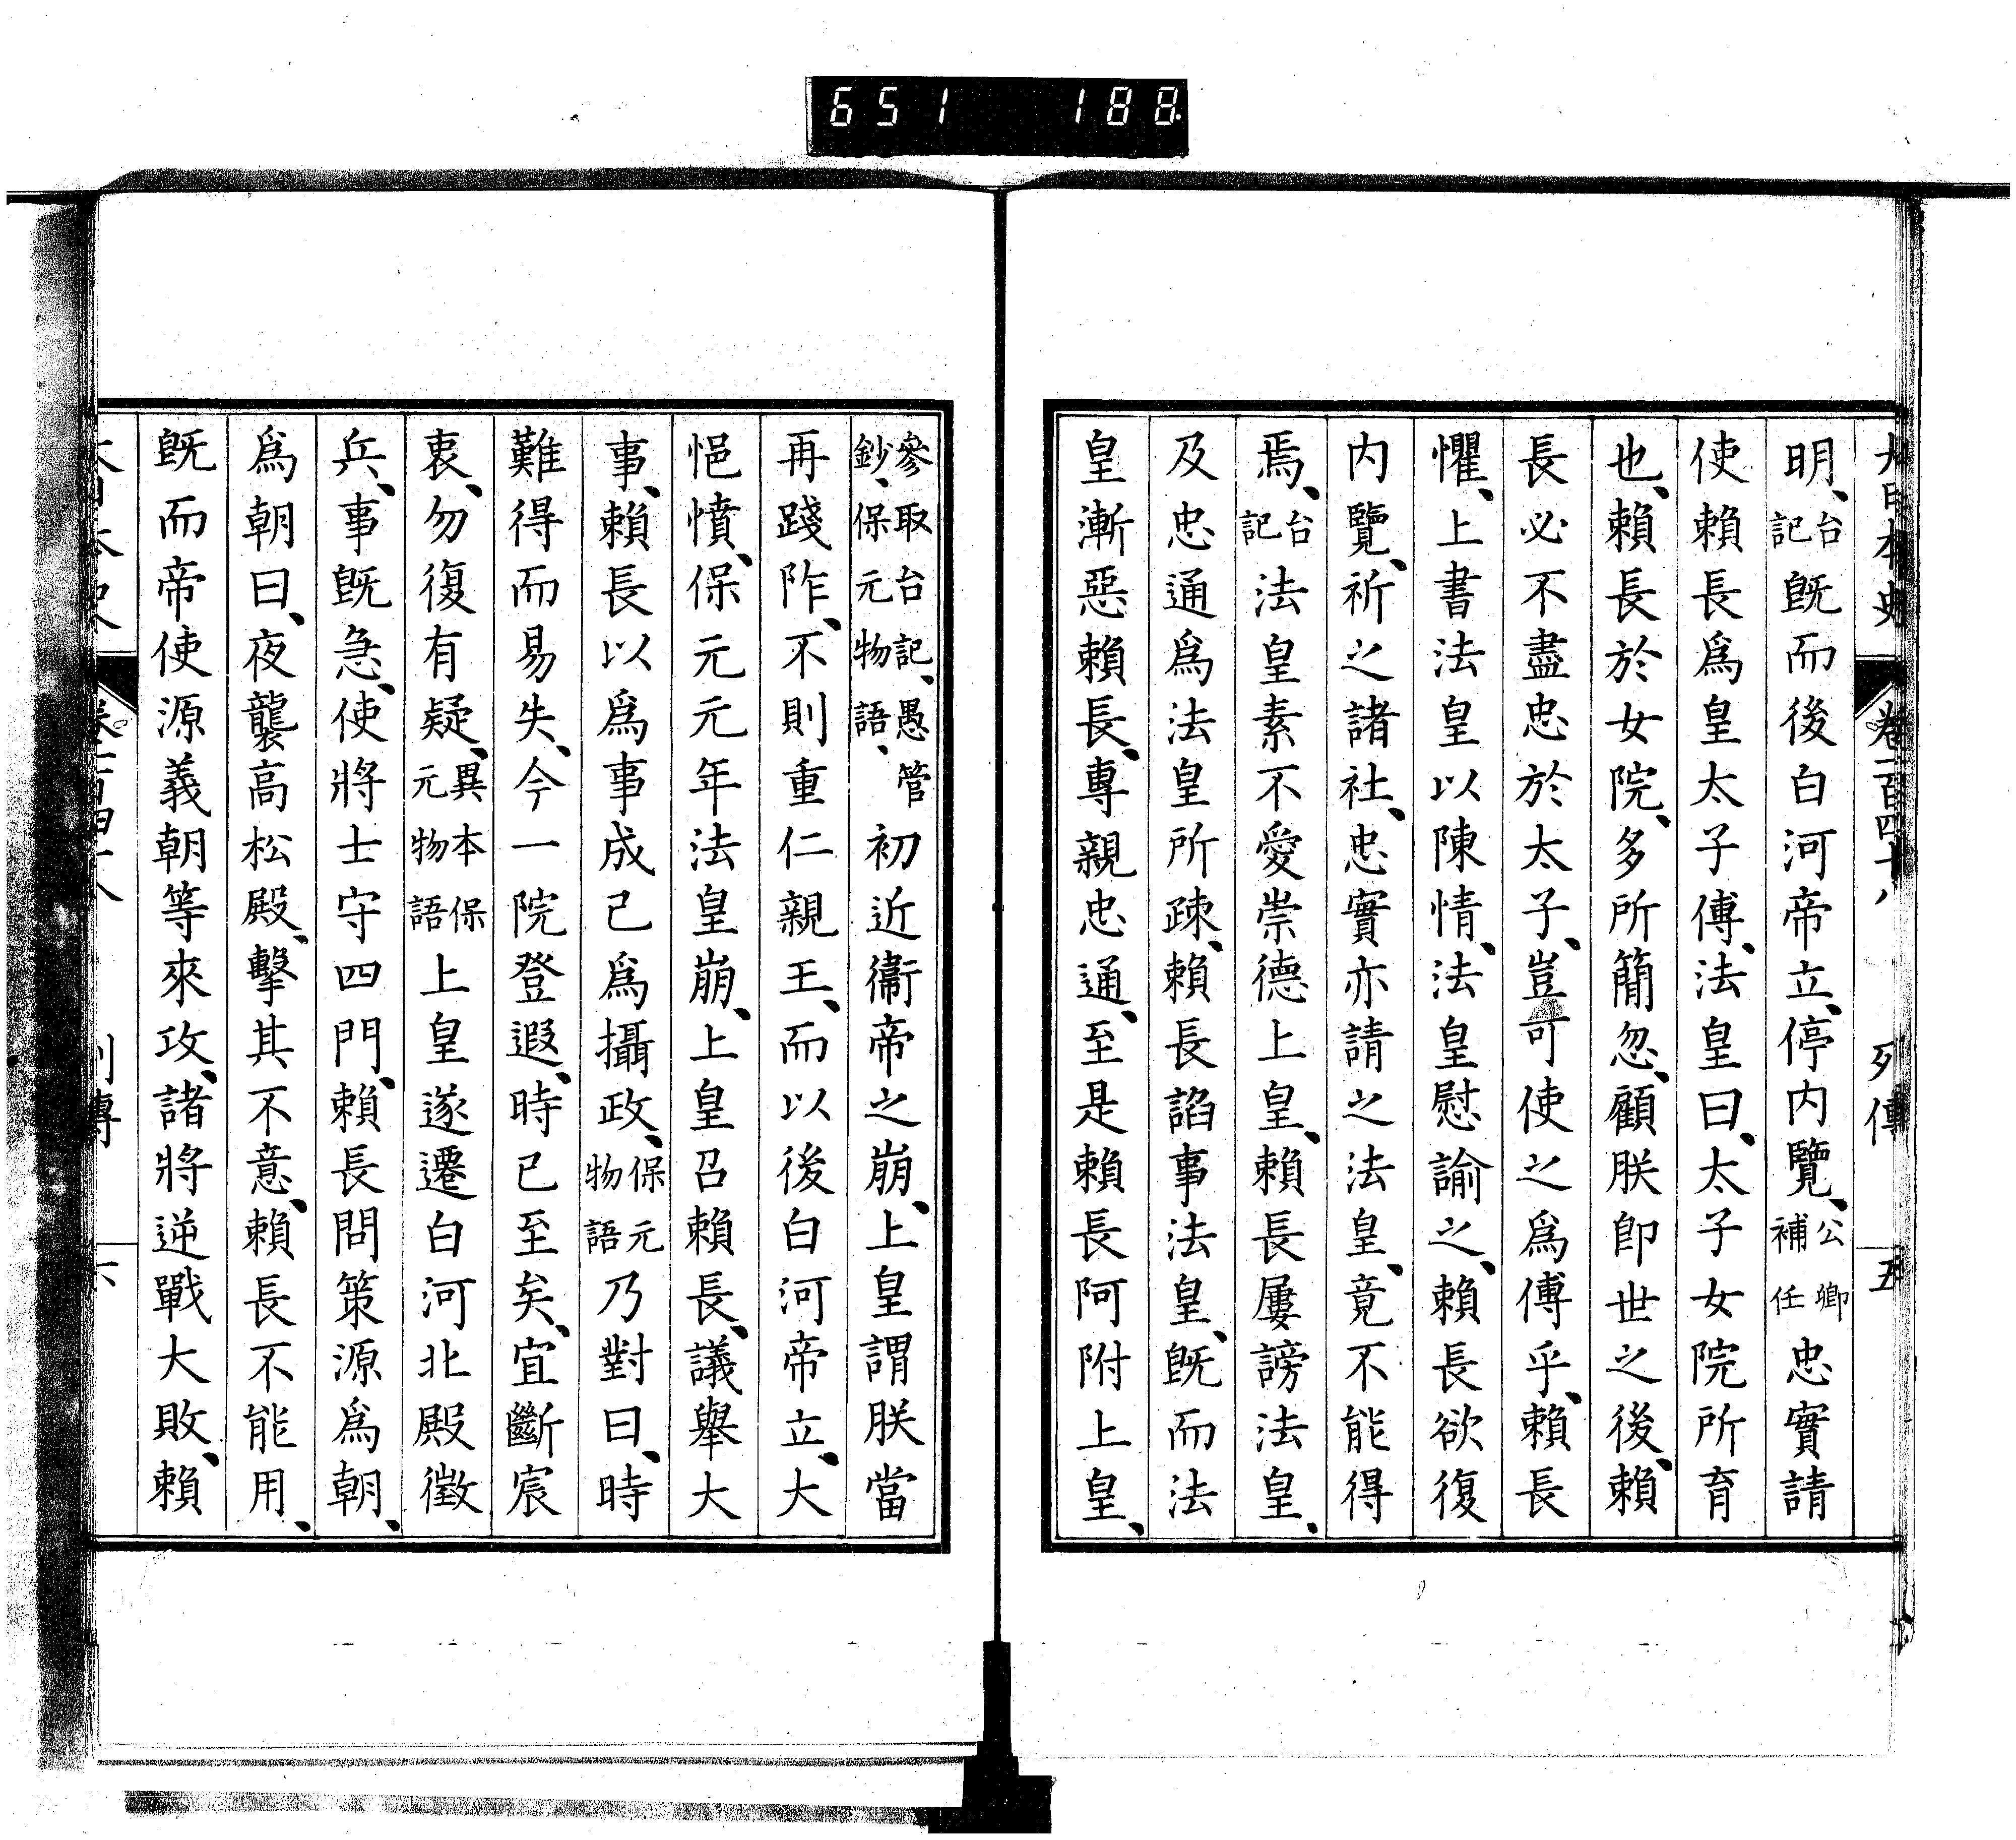 651 188
大日本史 卷一百四十八 列傳 五
明、台記既而後白河帝立、停内覽、公卿補任忠實請
使賴長爲皇太子傅、法皇曰、太子女院所育
也、賴長於女院、多所簡忽、顧朕卽世之後、賴
長必不盡忠於太子、豈可使之爲傅乎、賴長
懼、上書法皇以陳情、法皇慰諭之、賴長欲復
内覽、祈之諸社、忠實亦請之法皇、竟不能得
焉、台記法皇素不愛崇德上皇、賴長屢謗法皇、
及忠通爲法皇所疎、賴長諂事法皇、既而法
皇漸惡賴長、專親忠通、至是賴長阿附上皇、
參取台記、愚管鈔、保元物語、初近衞帝之崩、上皇謂朕當
再踐阼、不則重仁親王、而以後白河帝立、大
悒憤、保元元年法皇崩、上皇召賴長、議舉大
事、賴長以爲事成己爲攝政、保元物語乃對曰、時
難得而易失、今一院登遐、時已至矣、宜斷宸
衷、勿復有疑、異本保元物語上皇遂遷白河北殿徵
兵、事既急、使將士守四門、賴長問策源爲朝、
爲朝曰、夜襲高松殿、擊其不意、賴長不能用、
既而帝使源義朝等來攻、諸將逆戰大敗、賴
列傳 六